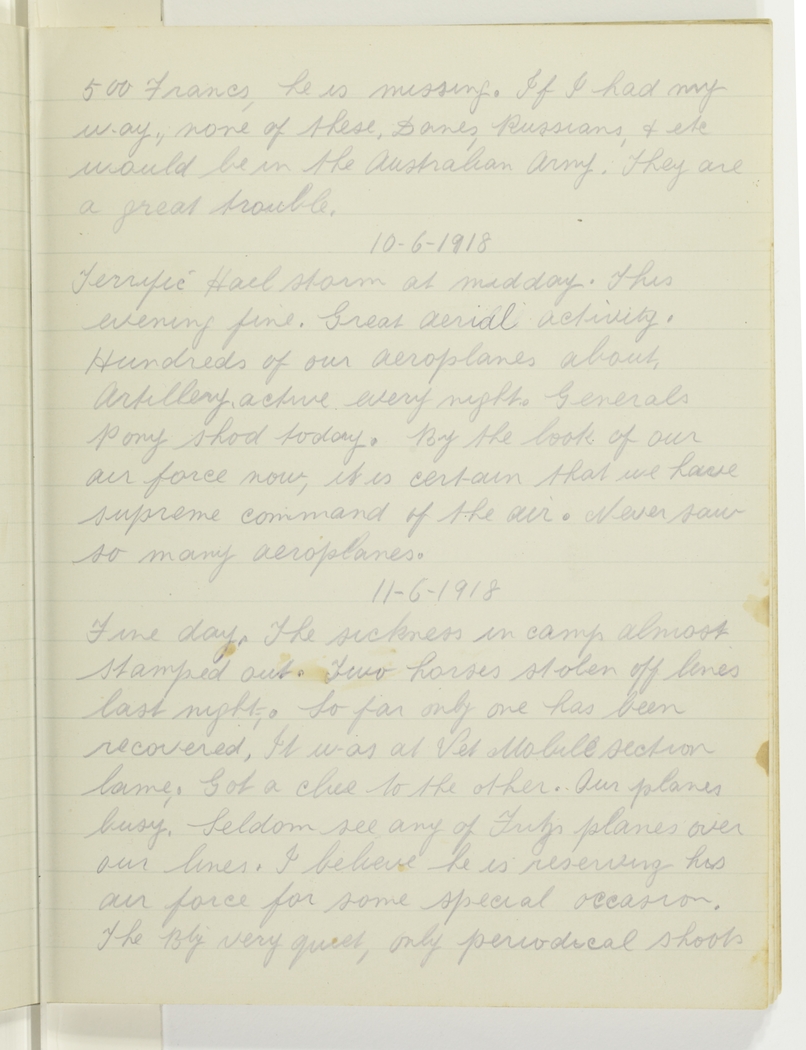 500 Francs, he is missing. If I had my
way, none of these, Danes, Russians, & etc
would be in the Australian Army. They are
a great trouble.
10-6-1918
Terrific Hael storm at midday. This
evening fine. Great aerial activity.
Hundreds of our aeroplanes about,
Artillery, active every night. Generals
Pony shod today. By the look of our
air force now, it is certain that we have
supreme command of the air. Never saw
so many aeroplanes.
11-6-1918
Fine day. The sickness in camp almost
stamped out. Two horses stolen off lines
last night,. So far only one has been
recovered, It was at Vet Mobile section
lame,. Got a clue to the other. Our planes
busy. Seldom see any of Fritz planes over
our lines. I believe he is reserving his
air force for some special occasion.
The Bty very quiet, only periodical shoots